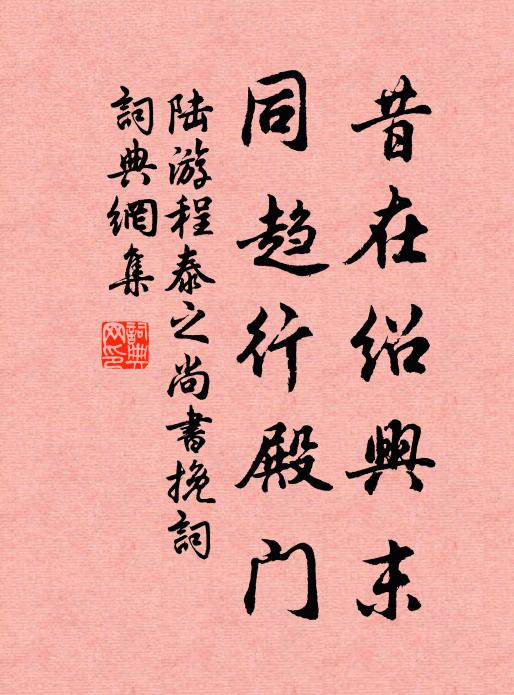 昔在绍興末
同趋行殿门
陆游程泰之尚書挽詞
詞典網集
詞典网印